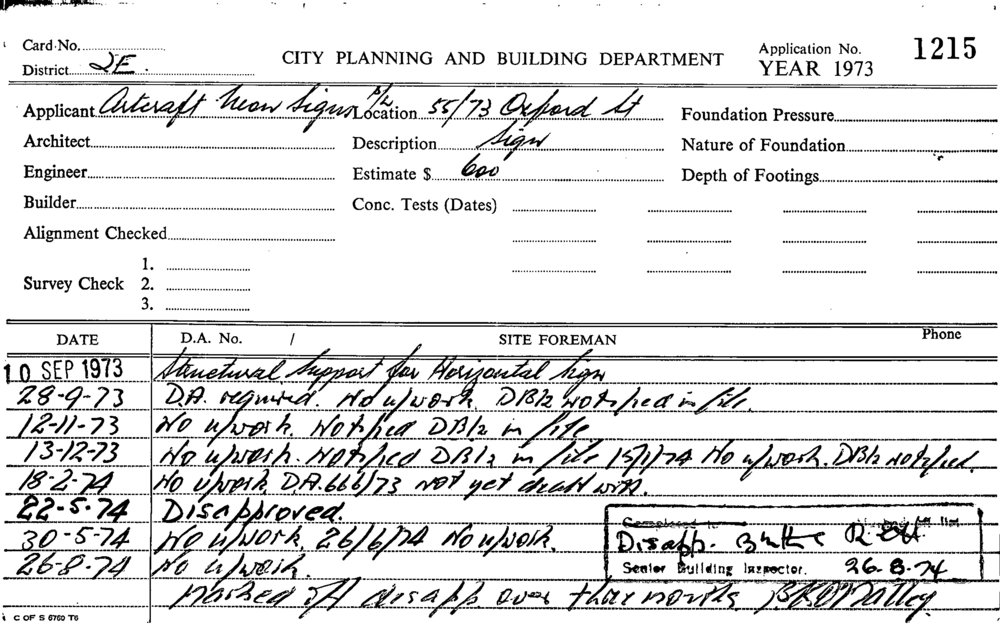 Card No.
District 2E.
CITY PLANNING AND BUILDING DEPARTMENT
Application No. 1215
YEAR 1973
Applicant Artcraft Neon Signs P/L Location 55/73 Oxford St Foundation Pressure
Architect Description Sign Nature of Foundation
Engineer Estimate $ 600 Depth of Footings
Builder Conc. Tests (Dates)
Alignment Checked
1.
Survey Check 2.
3.
DATE D.A. No. / SITE FOREMAN Phone
10 SEP 1973 Structural support for Horizontal Sign
28-9-73 D.A. required. No u/work. DB/2 notified in file.
12-11-73 No u/work. Notified DB/2 in file
13-12-73 No u/work. Notified DB/2 in file 15/1/74 No u/work. DB/2 notified.
18-2-74 No u/work. D.A. 666/73 not yet dealt with.
22-5-74 Disapproved.
30-5-74 No u/work. 26/6/74 No u/work.
26-8-74 No u/work.
Completed to
Disapp.
Senior Building Inspector. 26-8-74
Marked off disapp over three months
C OF S 6760 T6